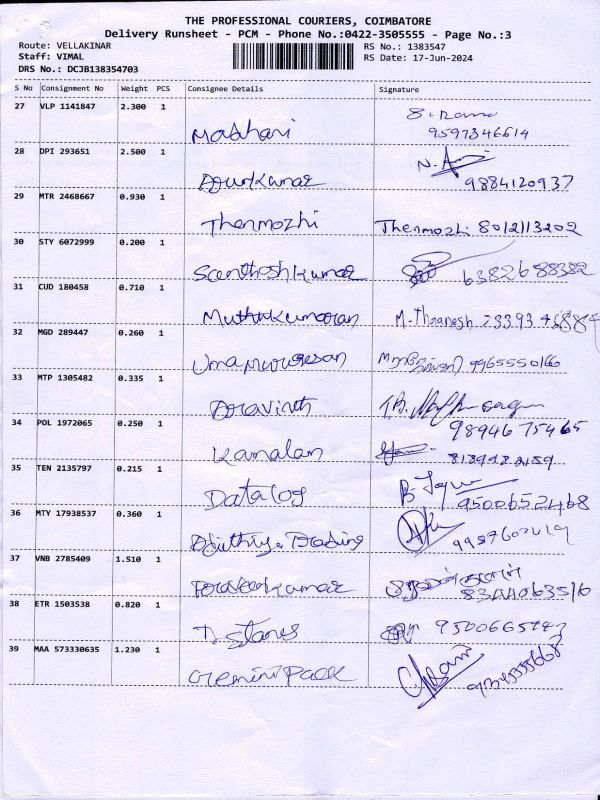 THE PROFESSIONAL COURIERS, COIMBATORE
Delivery Runsheet - PCM - Phone No.:0422-3505555 - Page No.:3
Route: VELLAKINAR RS No.: 1383547
Staff: VIMAL RS Date: 17-Jun-2024
DRS No.: DCJB138354703
S No Consignment No Weight PCS Consignee Details Signature
27 VLP 1141847 2.300 1
Madhani 9597346614
28 DPI 293651 2.500 1
9884120937
29 MTR 2468667 0.930 1
Thenmozhi Thenmozhi 8012113202
30 STY 6072999 0.200 1
Santhosh Kumar 6382688382
31 CUD 180458 0.710 1
Muthukumaran
32 MGD 289447 0.260 1
Uma Murugesan 9965550166
33 MTP 1305482 0.335 1
Aravinth
34 POL 1972065 0.250 1 9894675465
Kamalam
35 TEN 2135797 0.215 1
Datalog 9500652468
36 MTY 17938537 0.360 1
Trading
37 VNB 2785409 1.510 1
Praveenkumar 8344063516
38 ETR 1503538 0.820 1
D. Stanes
39 MAA 573330635 1.230 1
Gemini Pack